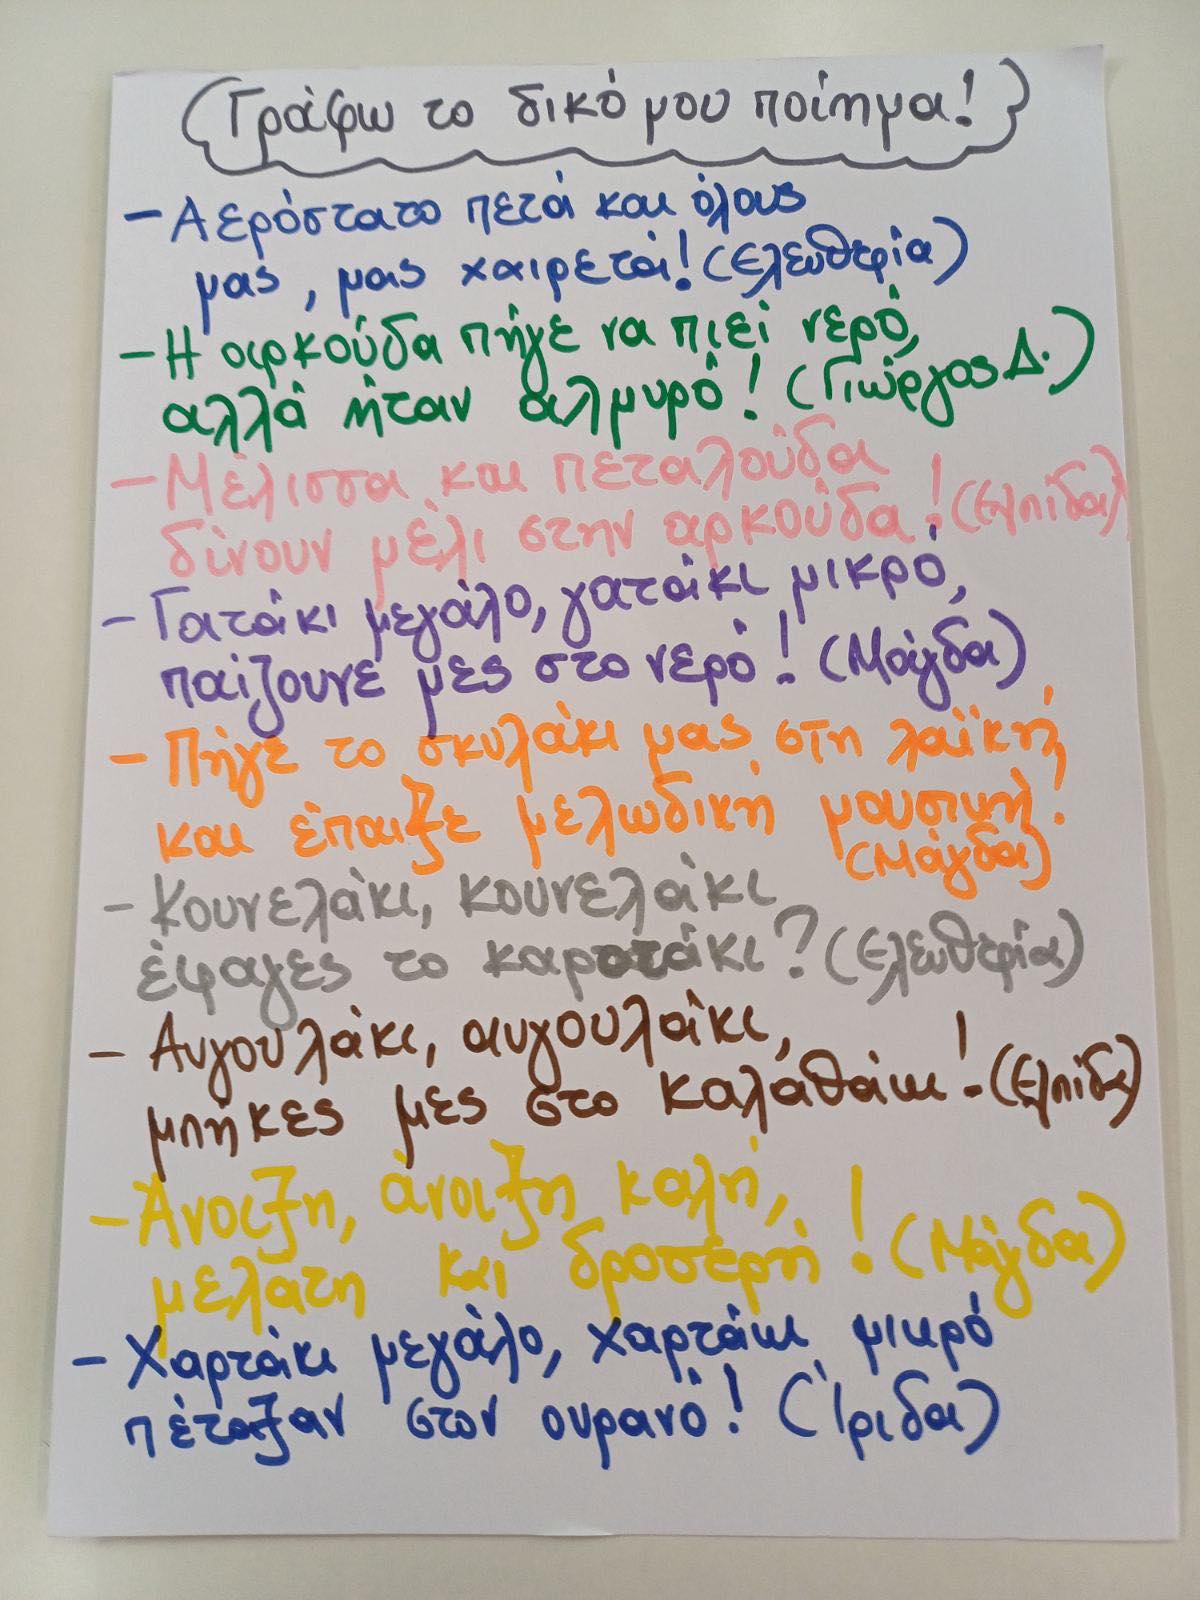 Γράφω το δικό μου ποίημα!
- Αερόστατο πετά και όλους
μας, μας χαιρετά! (Ελευθερία)
- Η αρκούδα πήγε να πιεί νερό,
αλλά ήταν αλμυρό! (Γιώργος Δ.)
- Μέλισσα και πεταλούδα
δίνουν μέλι στην αρκούδα! (Ελπίδα)
- Γατάκι μεγάλο, γατάκι μικρό,
παίζουνε μες στο νερό! (Μάγδα)
- Πήγε το σκυλάκι μας στη λαϊκή,
και έπαιξε μελωδική μουσική!
(Μάγδα)
- Κουνελάκι, κουνελάκι
έφαγες το καροτάκι? (Ελευθερία)
- Αυγουλάκι, αυγουλάκι,
μπήκες μες στο καλαθάκι! (Ελπίδα)
- Άνοιξη, άνοιξη καλή,
μελάτη και δροσερή! (Μάγδα)
- Χαρτάκι μεγάλο, χαρτάκι μικρό
πέταξαν στον ουρανό! (Ίριδα)